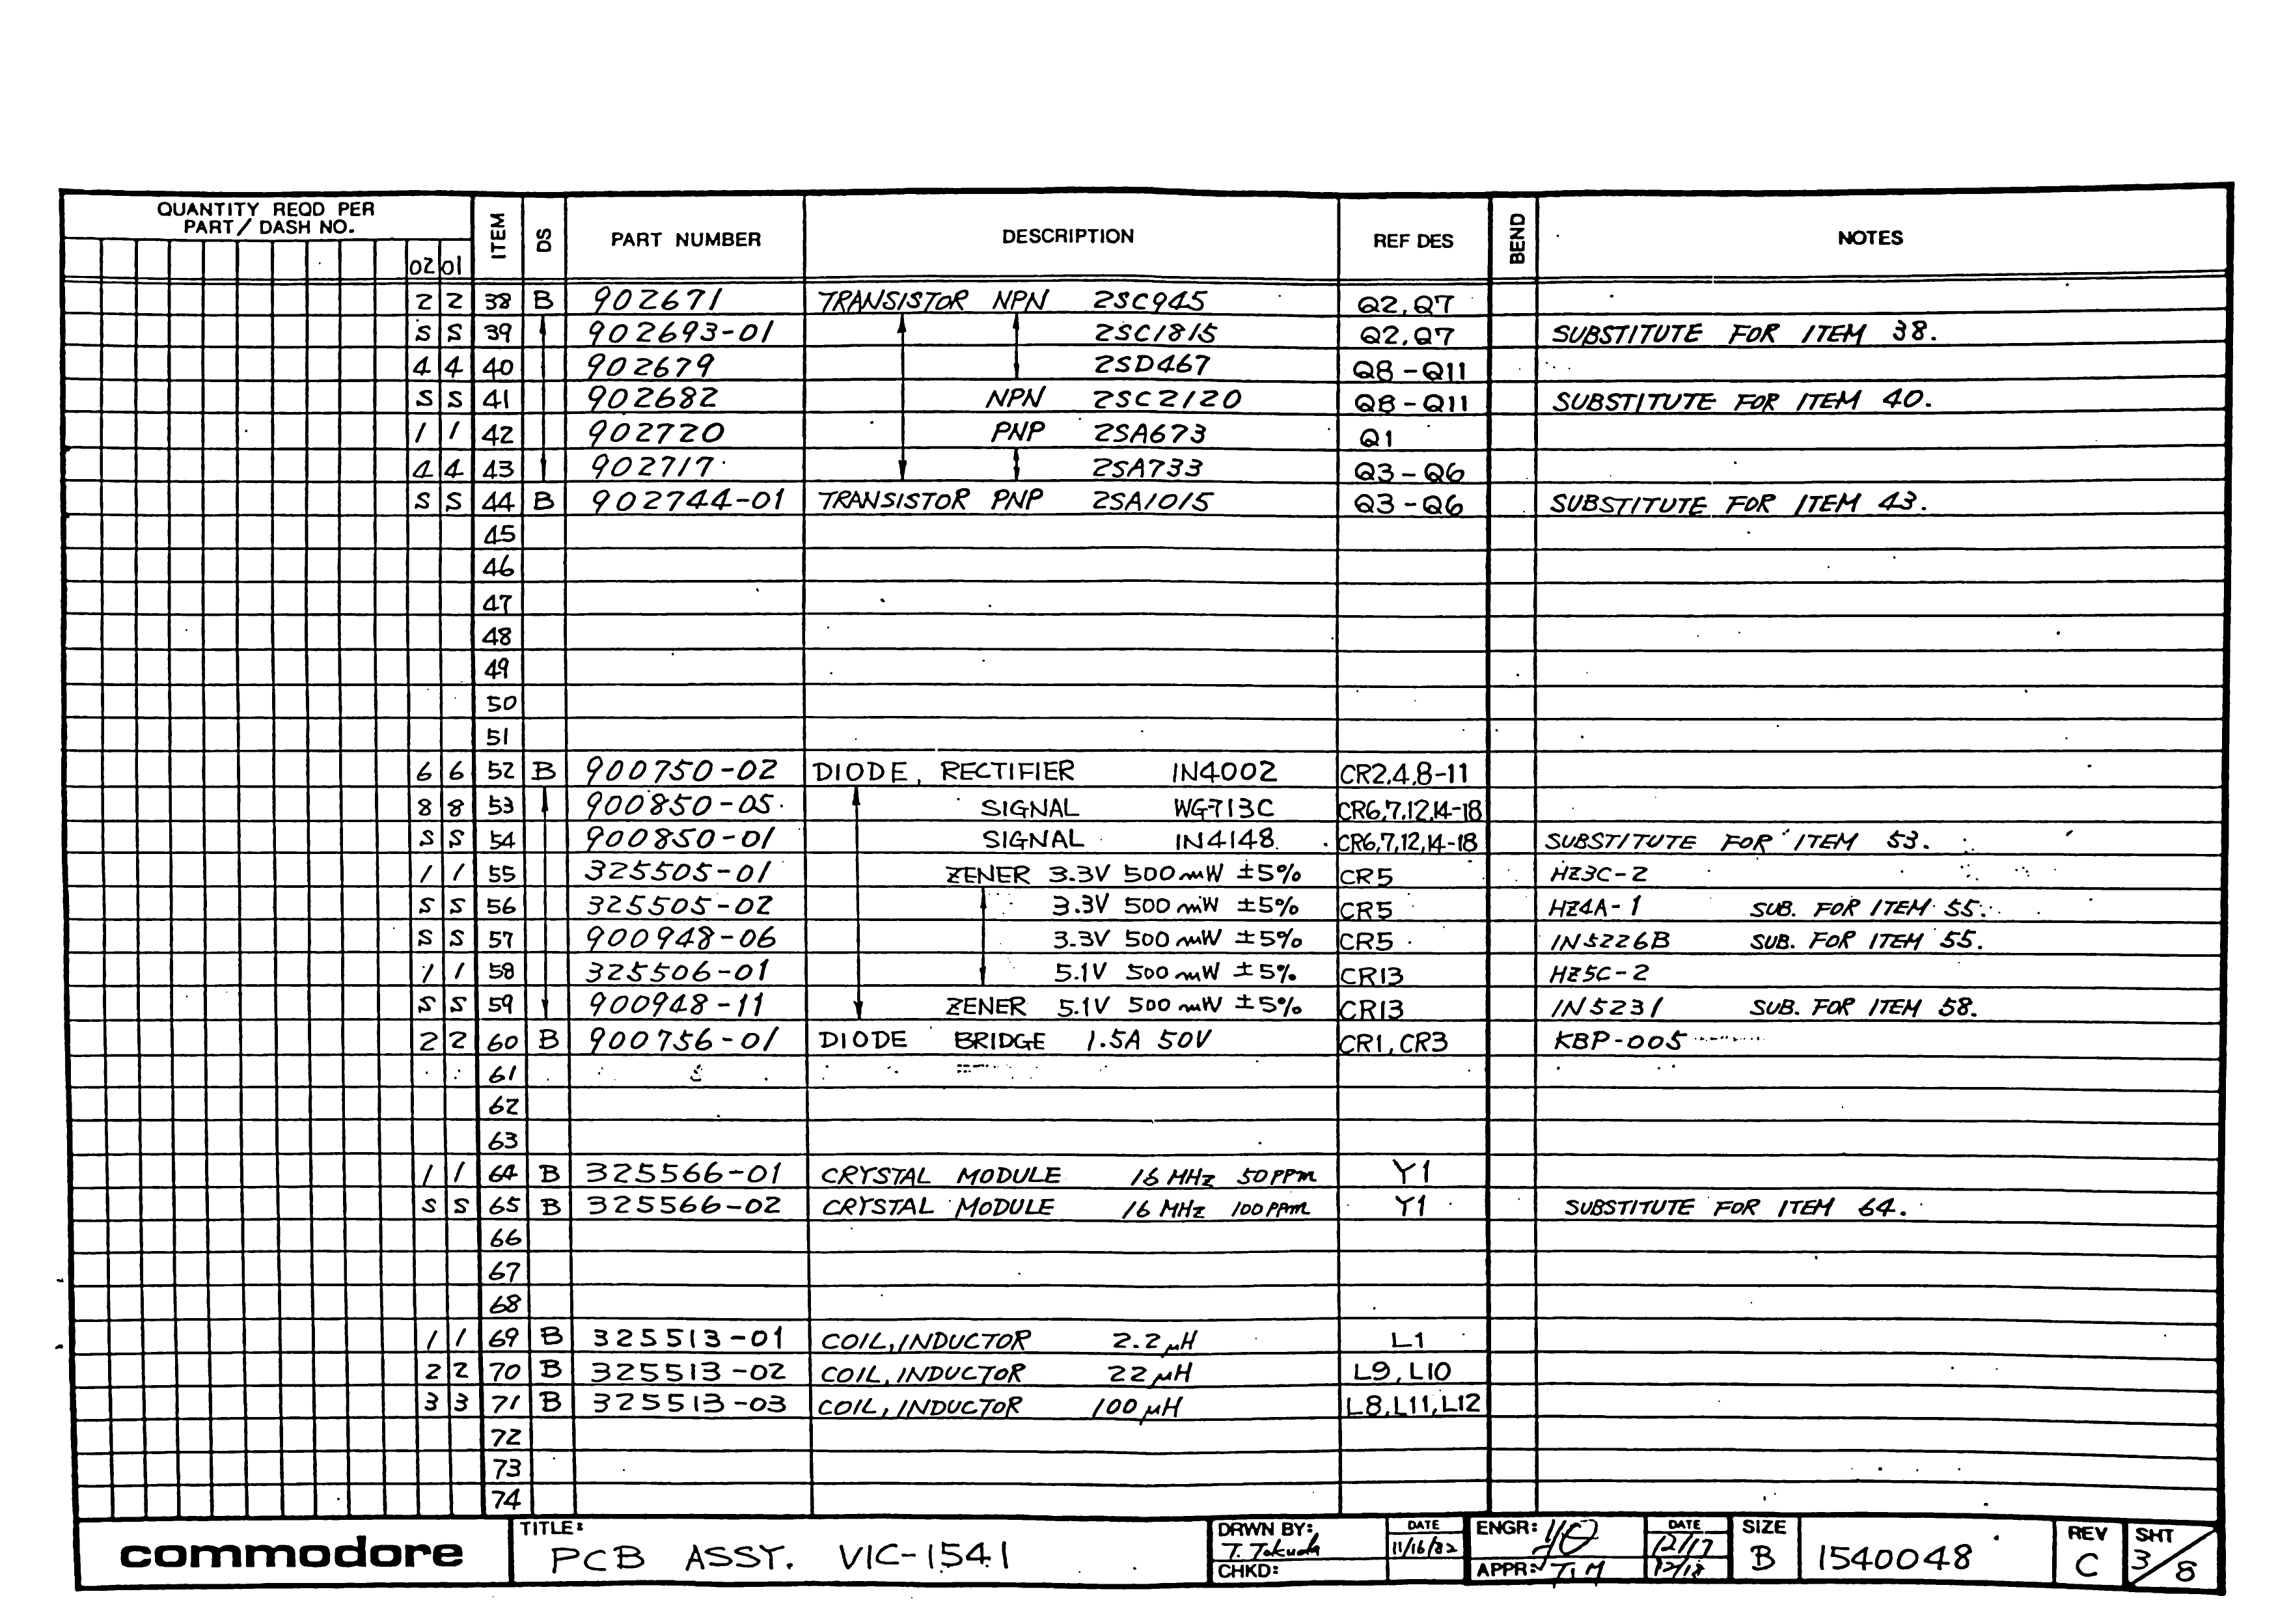 QUANTITY REQD PER
PART/DASH NO.
02 01 ITEM DS PART NUMBER DESCRIPTION REF DES BEND NOTES
2 2 38 B 902671 TRANSISTOR NPN 2SC945 Q2,Q7
S S 39 902693-01 2SC1815 Q2,Q7 SUBSTITUTE FOR ITEM 38.
4 4 40 902679 2SD467 Q8-Q11
S S 41 902682 NPN 2SC2120 Q8-Q11 SUBSTITUTE FOR ITEM 40.
1 1 42 902720 PNP 2SA673 Q1
4 4 43 902717 2SA733 Q3-Q6
S S 44 B 902744-01 TRANSISTOR PNP 2SA1015 Q3-Q6 SUBSTITUTE FOR ITEM 43.
45
46
47
48
49
50
51
6 6 52 B 900750-02 DIODE, RECTIFIER IN4002 CR2,4,8-11
8 8 53 900850-05 SIGNAL WG713C CR6,7,12,14-18
S S 54 900850-01 SIGNAL IN4148 CR6,7,12,14-18 SUBSTITUTE FOR ITEM 53.
1 1 55 325505-01 ZENER 3.3V 500mW ±5% CR5 HZ3C-2
S S 56 325505-02 3.3V 500mW ±5% CR5 HZ4A-1 SUB. FOR ITEM 55.
S S 57 900948-06 3.3V 500mW ±5% CR5 IN5226B SUB. FOR ITEM 55.
1 1 58 325506-01 5.1V 500mW ±5% CR13 HZ5C-2
S S 59 900948-11 ZENER 5.1V 500mW ±5% CR13 IN5231 SUB. FOR ITEM 58.
2 2 60 B 900756-01 DIODE BRIDGE 1.5A 50V CR1,CR3 KBP-005
61
62
63
1 1 64 B 325566-01 CRYSTAL MODULE 16 MHz 50PPm Y1
S S 65 B 325566-02 CRYSTAL MODULE 16 MHz 100PPm Y1 SUBSTITUTE FOR ITEM 64.
66
67
68
1 1 69 B 325513-01 COIL,INDUCTOR 2.2μH L1
2 2 70 B 325513-02 COIL,INDUCTOR 22μH L9,L10
3 3 71 B 325513-03 COIL,INDUCTOR 100μH L8,L11,L12
72
73
74
commodore
TITLE:
PCB ASSY. VIC-1541
DRWN BY: T. Tokuda DATE 11/16/82
CHKD:
ENGR: DATE 12/17
APPR: T.M 12/18
SIZE B
1540048
REV C
SHT 3/8